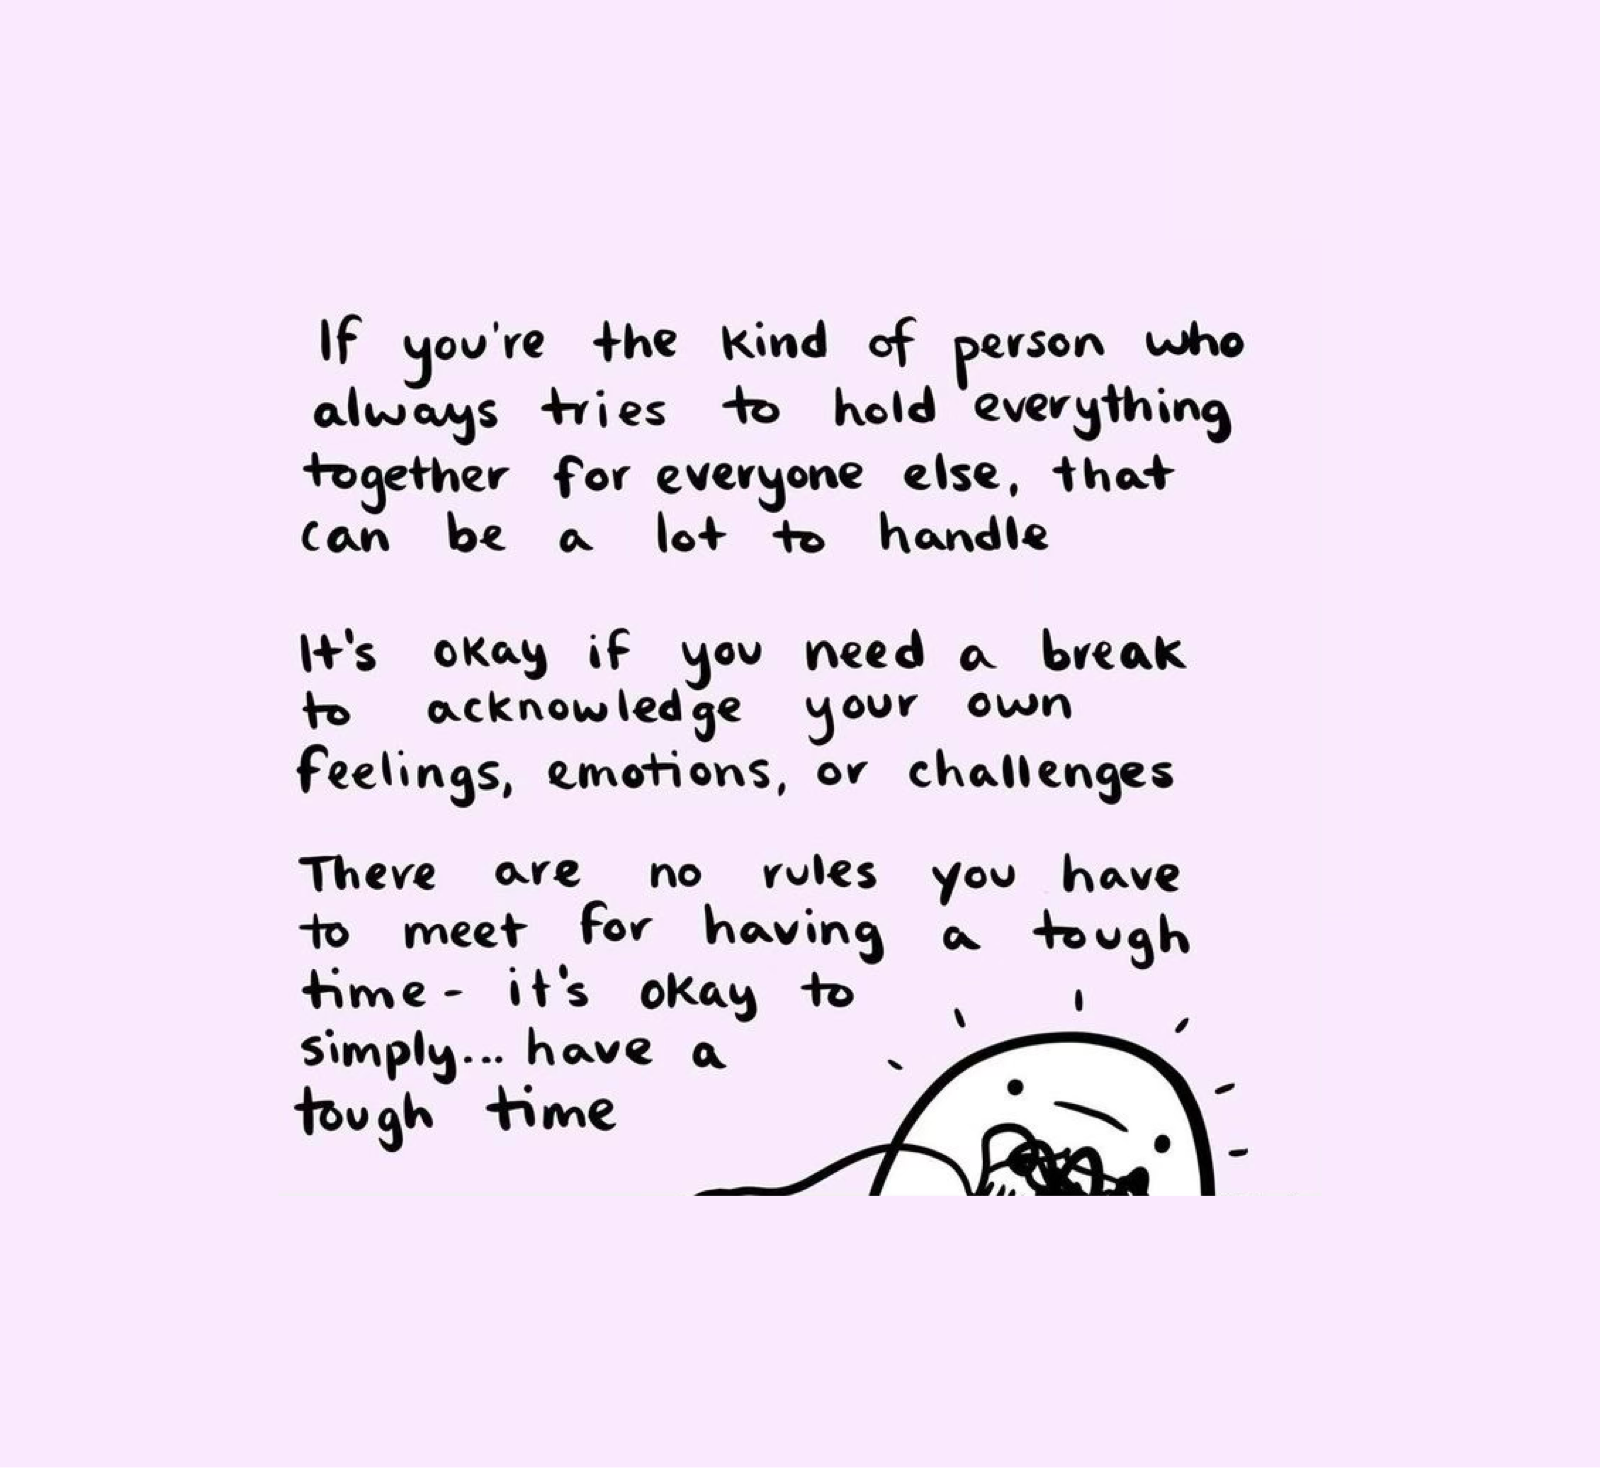 If you're the kind of person who
always tries to hold everything
together for everyone else, that
can be a lot to handle
It's okay if you need a break
to acknowledge your own
feelings, emotions, or challenges
There are no rules you have
to meet for having a tough
time - it's okay to
simply... have a
tough time